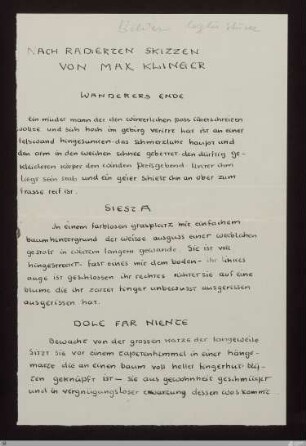 NACH RADIERTEN SKIZZEN
VON MAX KLINGER
WANDERERS ENDE
Ein müder mann der den winterlichen pass überschreiten
wollte und sich hoch im gebirg verirrte hat ist an einer
felswand hingesunken das schmerzliche haupt und
den arm in den weichen schnee gebettet den dürftig ge-
kleideten körper den winden preisgebend Unter ihm
liegt sein stab und ein geier schielt ihn an ober zum
frasse reif ist.
SIESTA
In einem farblosen grasplatz mit einfachem
baumhintergrund der weisse ausguss einer weiblichen
gestalt in weitem langem gewande. Sie ist voll
hingestreckt fast eines mit dem boden ihr linkes
auge ist geschlossen ihr rechtes stiert auf eine
blume die ihr zarter finger unbewusst ausgerissen
ausgerissen hat.
DOLCE FAR NIENTE
Bewacht von der grossen katze der langeweile
sitzt sie vor einem tapetenhimmel in einer hänge-
matte die an einen baum voll heller fingerhut blü-
ten geknüpft ist — Sie aus gewohnheit geschmückt
und in vergnügungsloser erwartung dessen was komme